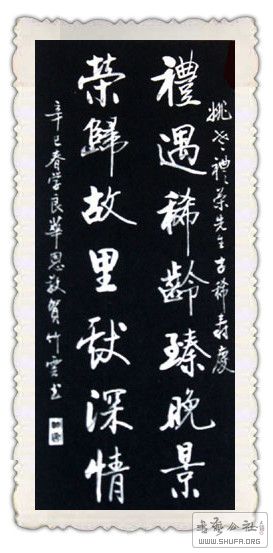 姚禮荣先生古稀壽慶
禮遇稀齡臻晚景
榮歸故里献深情
辛巳春学良華恩敬賀竹雲书
书艺公社
WWW.SHUFA.ORG